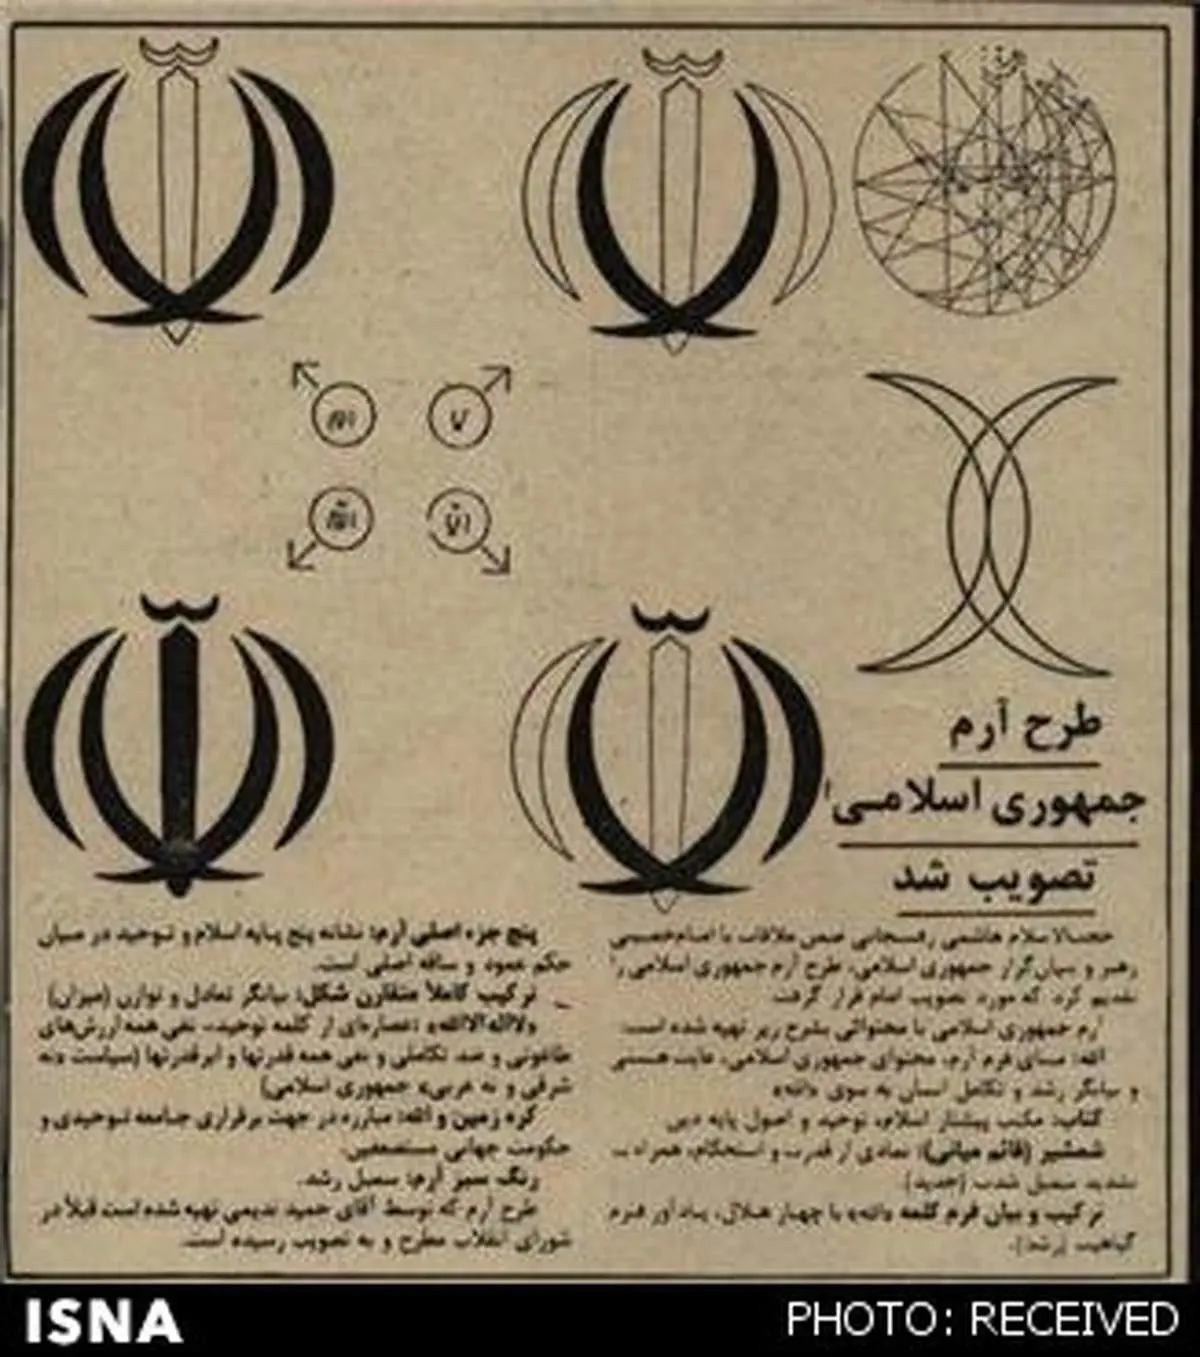 طرح آرم
جمهوری اسلامی
تصویب شد
حجت‌الاسلام هاشمی رفسنجانی ضمن ملاقات با امام خمینی
رهبر و بنیان‌گزار جمهوری اسلامی، طرح آرم جمهوری اسلامی را
تقدیم کرد که مورد تصویب امام قرار گرفت
آرم جمهوری اسلامی با محتوائی بشرح زیر تهیه شده است:
الله: مبنای فرم آرم، محتوای جمهوری اسلامی، غایت هستی
و بیانگر رشد و تکامل انسان به سوی «الله»
کتاب: مکتب پیشتاز اسلام، توحید و اصول پایه دین
شمشیر (قائم میانی): نمادی از قدرت و استحکام، همراه با
تشدید سمبل شدت (حدید)
ترکیب و بیان فرم کلمه «الله» با چهار هلال، یادآور فرم
گیاهیت (رشد).
پنج جزء اصلی آرم: نشانه پنج پایه اسلام و توحید در میان
حکم عمود و ساقه اصلی است.
ترکیب کاملاً متقارن شکل: بیانگر تعادل و توازن (میزان)
«لااله‌الاالله» (عصاره‌ای از کلمه توحید، نفی همه ارزش‌های
طاغوتی و ضد تکاملی و نفی همه قدرتها و ابرقدرتها (سیاست «نه
شرقی و نه غربی» جمهوری اسلامی)
کره زمین و الله: مبارزه در جهت برقراری جامعه توحیدی و
حکومت جهانی مستضعفین.
رنگ سبز آرم: سمبل رشد.
طرح آرم که توسط آقای حمید ندیمی تهیه شده است قبلاً در
شورای انقلاب مطرح و به تصویب رسیده است.
ISNA
PHOTO: RECEIVED